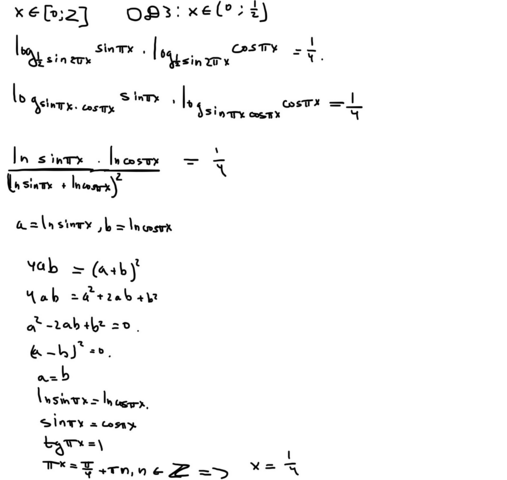 x ∈ [0; 2] ОДЗ: x ∈ (0; 1/2)
log_{1/2 sin 2πx} sin πx · log_{1/2 sin 2πx} cos πx = 1/4.
log_{sin πx · cos πx} sin πx · log_{sin πx cos πx} cos πx = 1/4
(ln sin πx · ln cos πx)/(ln sin πx + ln cos πx)² = 1/4
a = ln sin πx, b = ln cos πx
4ab = (a+b)²
4ab = a² + 2ab + b²
a² - 2ab + b² = 0.
(a - b)² = 0.
a = b
ln sin πx = ln cos πx.
sin πx = cos πx
tg πx = 1
πx = π/4 + πn, n ∈ Z => x = 1/4